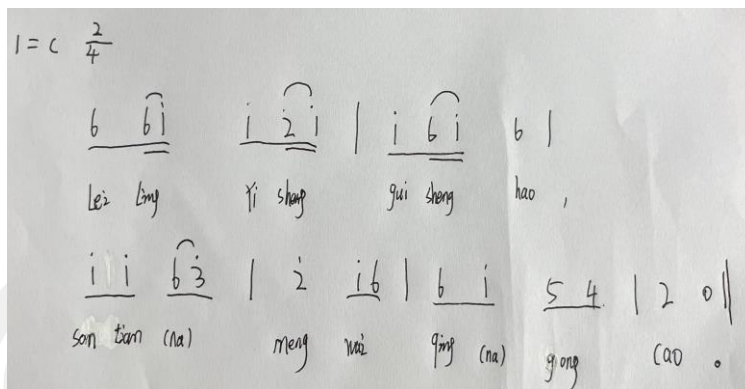 1=C 2/4
6 6i i 2i | i 6i 6 |
Lei Ling Yi sheng gui sheng hao ,
i i 6 3 | 2 i6 | 6 i 5 4 | 2 0 ||
san tian (na) meng wai qing (na) gong cao 。